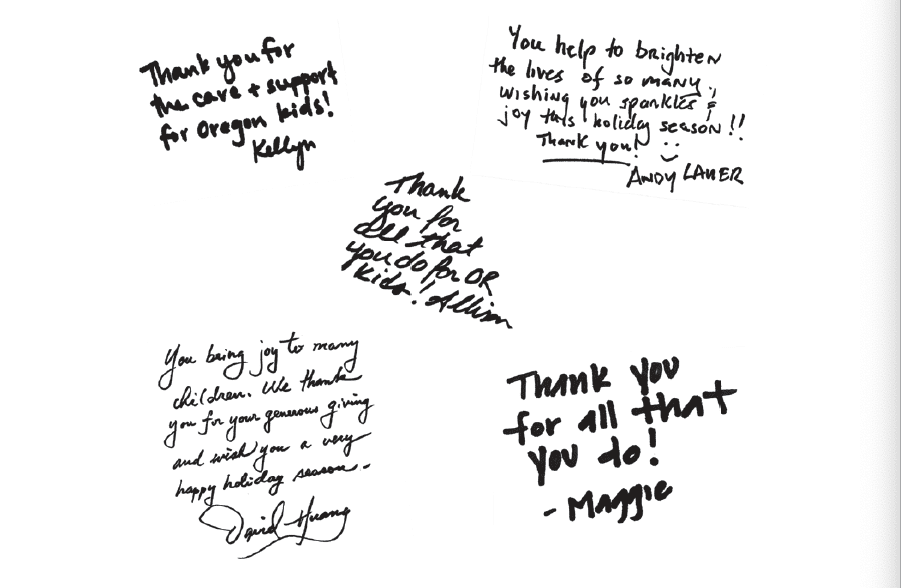 Thank you for
the care + support
for Oregon kids!
Kellyn
You help to brighten
the lives of so many;
wishing you sparkles &
joy this holiday season!!
Thank you!
ANDY LAUER
Thank
you for
all that
you do for OR
kids! Allison
You bring joy to many
children. We thank
you for your generous giving
and wish you a very
happy holiday season.
David Huang
Thank you
for all that
you do!
- Maggie